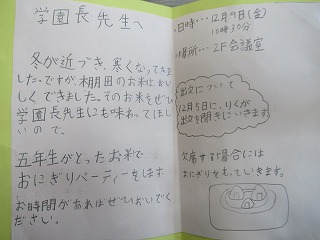 学園長先生へ
冬が近づき、寒くなってきま
した。ですが、棚田のお米はおい
しくできました。そのお米をぜひ
学園長先生にも味わってほし
いので、
五年生がとったお米で
おにぎりパーティーをします
お時間があればぜひおいでく
ださい。
日時・・・12月9日(金)
10時30分
場所・・・2F会議室
出欠について
12月5日に、りくが
出欠を聞きにいきます。
欠席する場合には
おにぎりをもっていきます。